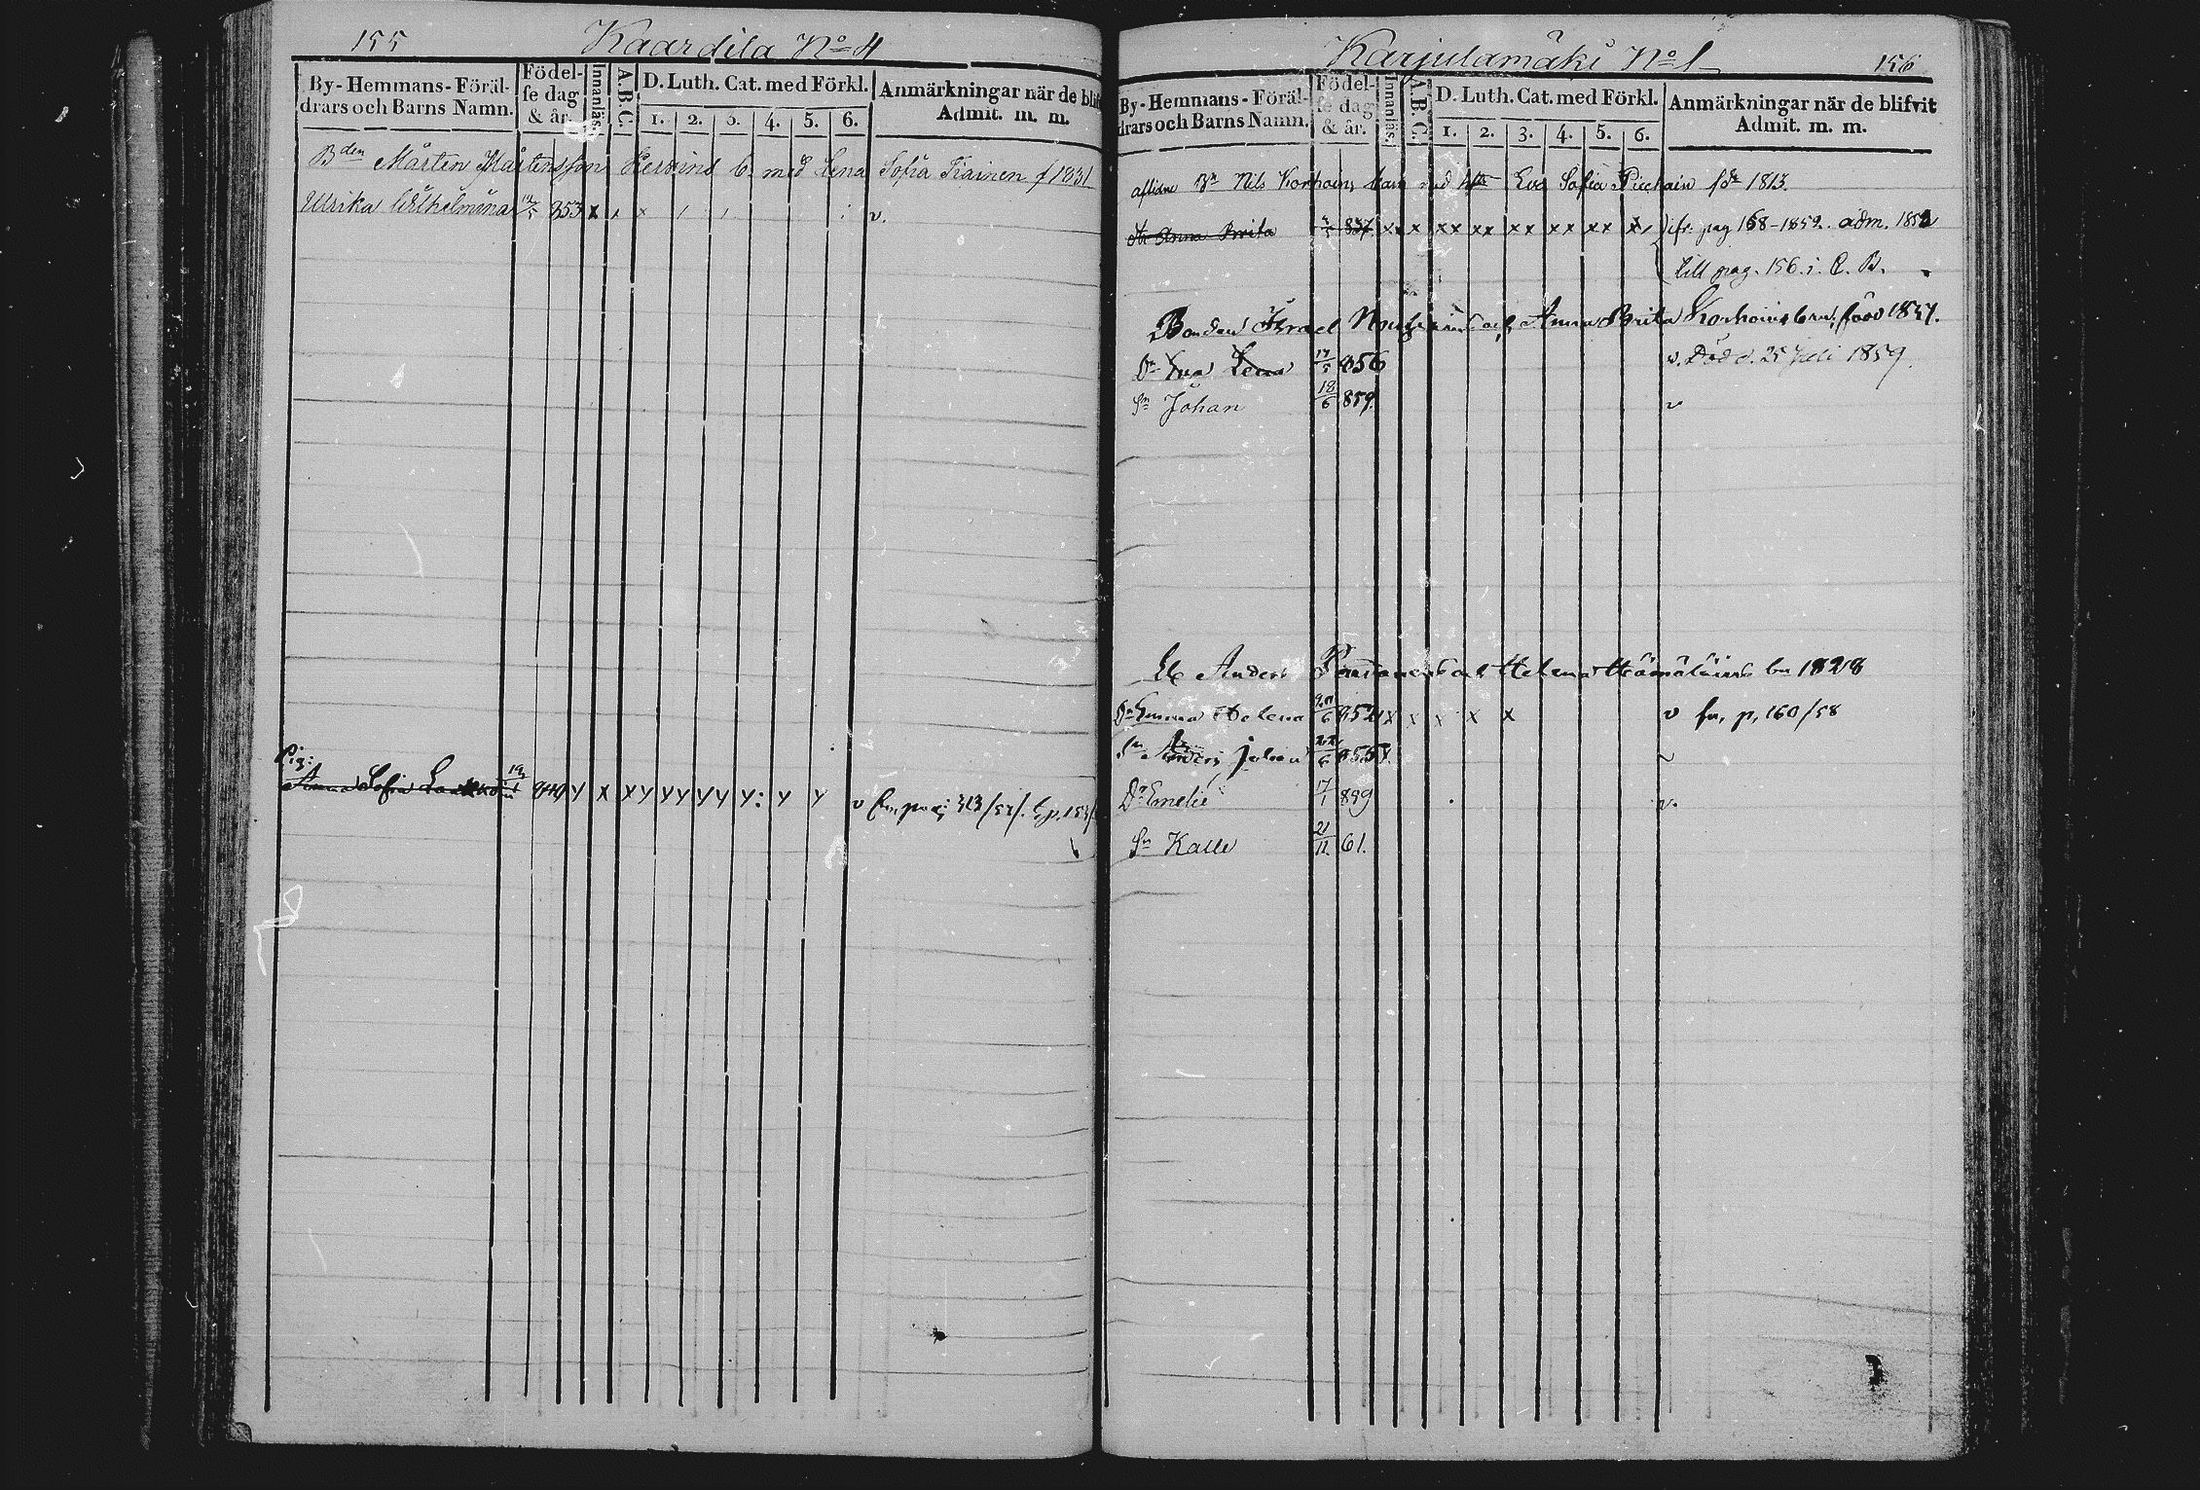 155
Kaardila No 4
By-Hemmans-Föräl-
drars och Barns Namn.
Födel-
se dag
& år.
Innanläs.
A.B.C.
D. Luth. Cat. med Förkl.
1. 2. 3. 4. 5. 6.
Anmärkningar när de blif
Admit. m. m.
Bden Mårten Mårtensson b. med Lena Sofia f 1831
Ulrika Wilhelmina 853 x v.
Pig:
Anna Sofia 840 y x x y y y y y y : y y v
Karjulamäki No 1
156
By-Hemmans-Föräl-
drars och Barns Namn.
Födel-
se dag
& år.
Innanläs.
A.B.C.
D. Luth. Cat. med Förkl.
1. 2. 3. 4. 5. 6.
Anmärkningar när de blifvit
Admit. m. m.
aflidne Bn Nils Korhoins barn med Eva Sofia fdr 1813.
Dr Anna Brita 837 x x xx xx xx xx xx fr. pag 168-1852. adm. 1852
till pag. 156. i. C. B.
Bonden Israel och Anna Brita Korhoins brn, född 1837.
Dr Eva Lena 17/5 856 v. Död d. 25 Juli 1859.
Sn Johan 18/6 859. v
Anders och Helena Hämäläins bn 1828
Dr Emma Helena 852 x x x x x v fr, p, 160/58
Sn Anders Johan 22/6 855
Dr Emelie 17/1 859 v.
Sn Kalle 21/11 61.